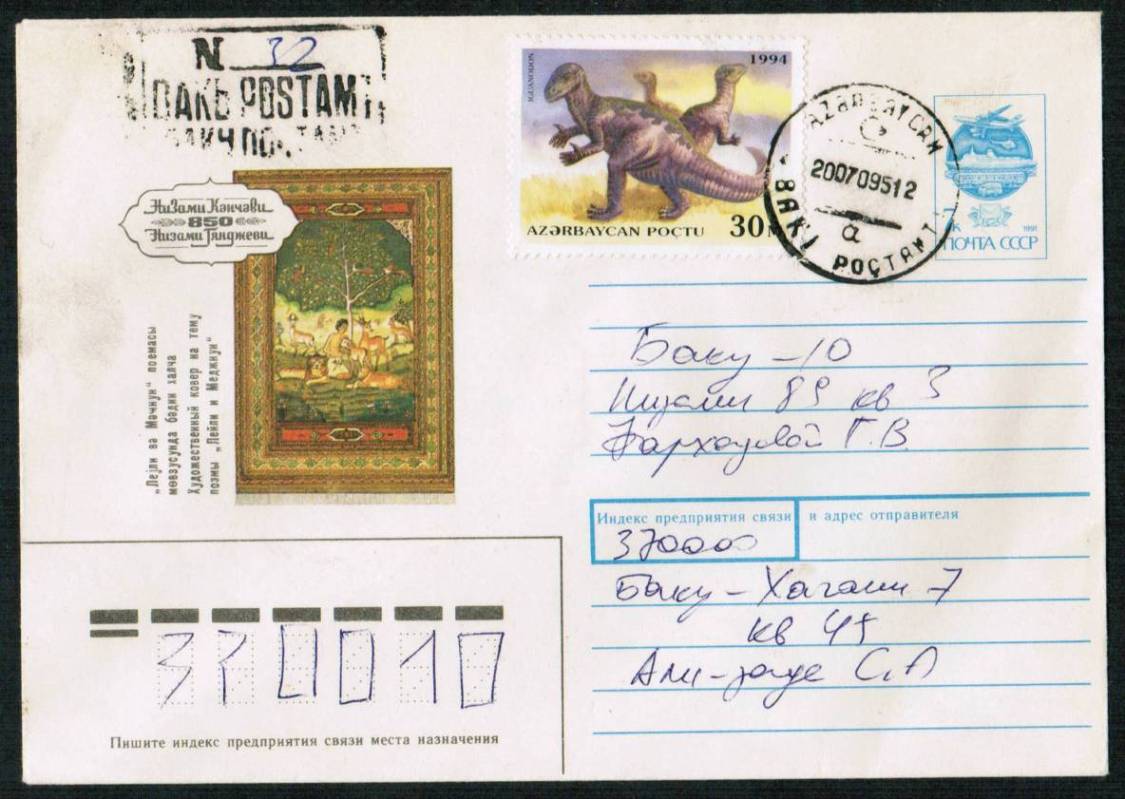 N 32
BAKI POSTAMT
IGUANODON
1994
AZƏRBAYCAN POÇTU 30
AZƏRBAYCAN
200709512
a
BAKI POÇTAMT
7к 1991
ПОЧТА СССР
Низами Кәнчәви
850
Низами Гянджеви
„Лејли вә Мәчнун“ поемасы
мөвзусунда бәдии халча
Художественный ковер на тему
поэмы „Лейли и Меджнун“
Баку - 10
Низами 89 кв 3
Г.В.
Индекс предприятия связи и адрес отправителя
370000
Баку - Хагани 7
кв 45
Али-заде С.А
370010
Пишите индекс предприятия связи места назначения